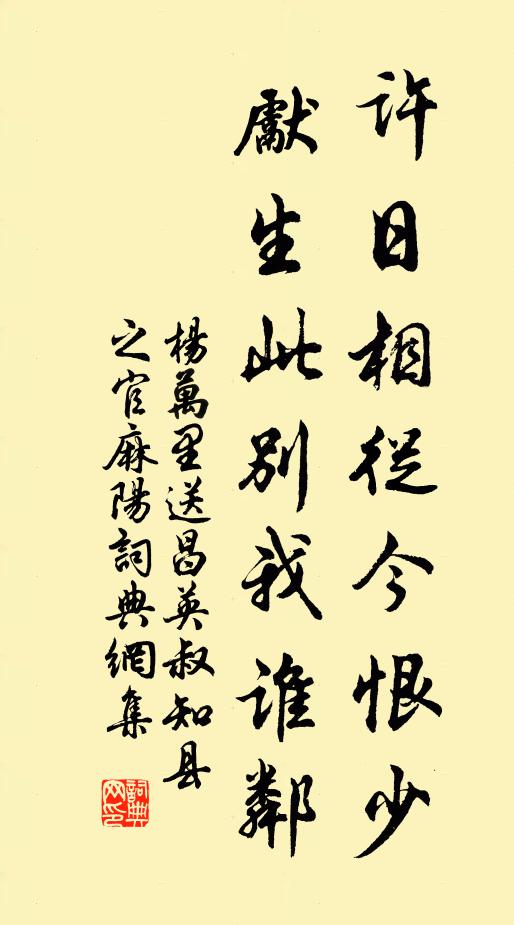 許日相從今恨少
獻生此別我誰鄰
楊萬里送昌英叔知县
之官麻陽詞典網集
詞典
网印